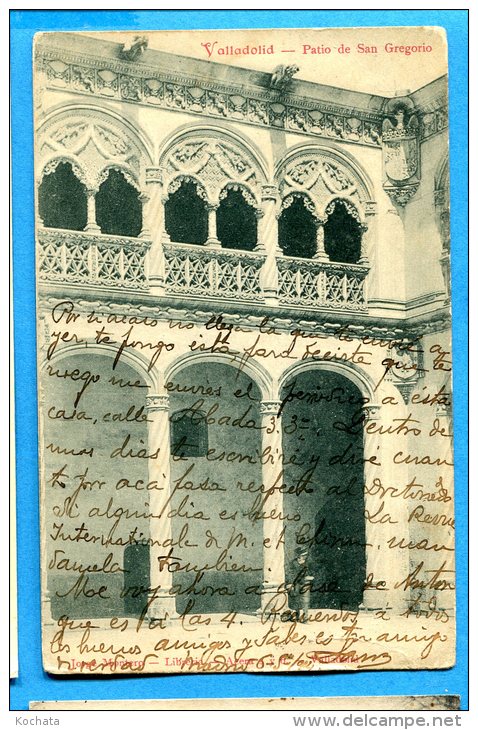 Valladolid — Patio de San Gregorio
Por si acaso no llega la que te envié a
yer, te pongo esta para decirte que te
ruego me envies el periódico a ésta
casa, calle Abada 3, 3º. Dentro de
unos dias te escribiré y diré cuan
to por acá pasa respecto al Doctorado
Si algun dia es bueno. La Revue
Internationale de M. et man
damela tambien.
Me voy ahora a clase de
que es a las 4. Recuerdos a todos
los buenos amigos y sabes es tu amigo
Madrid
Jorge Montero — Valladolid
Kochata
www.delcampe.net